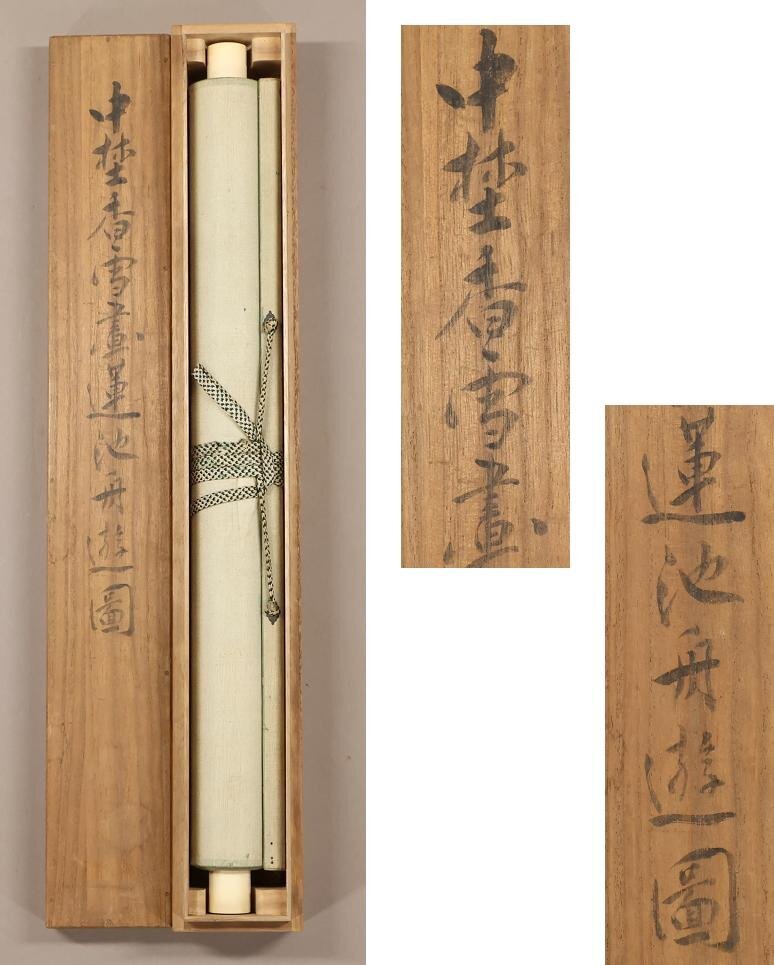 中埜香雪畫蓮池舟遊圖
中埜香雪畫
蓮池舟遊圖